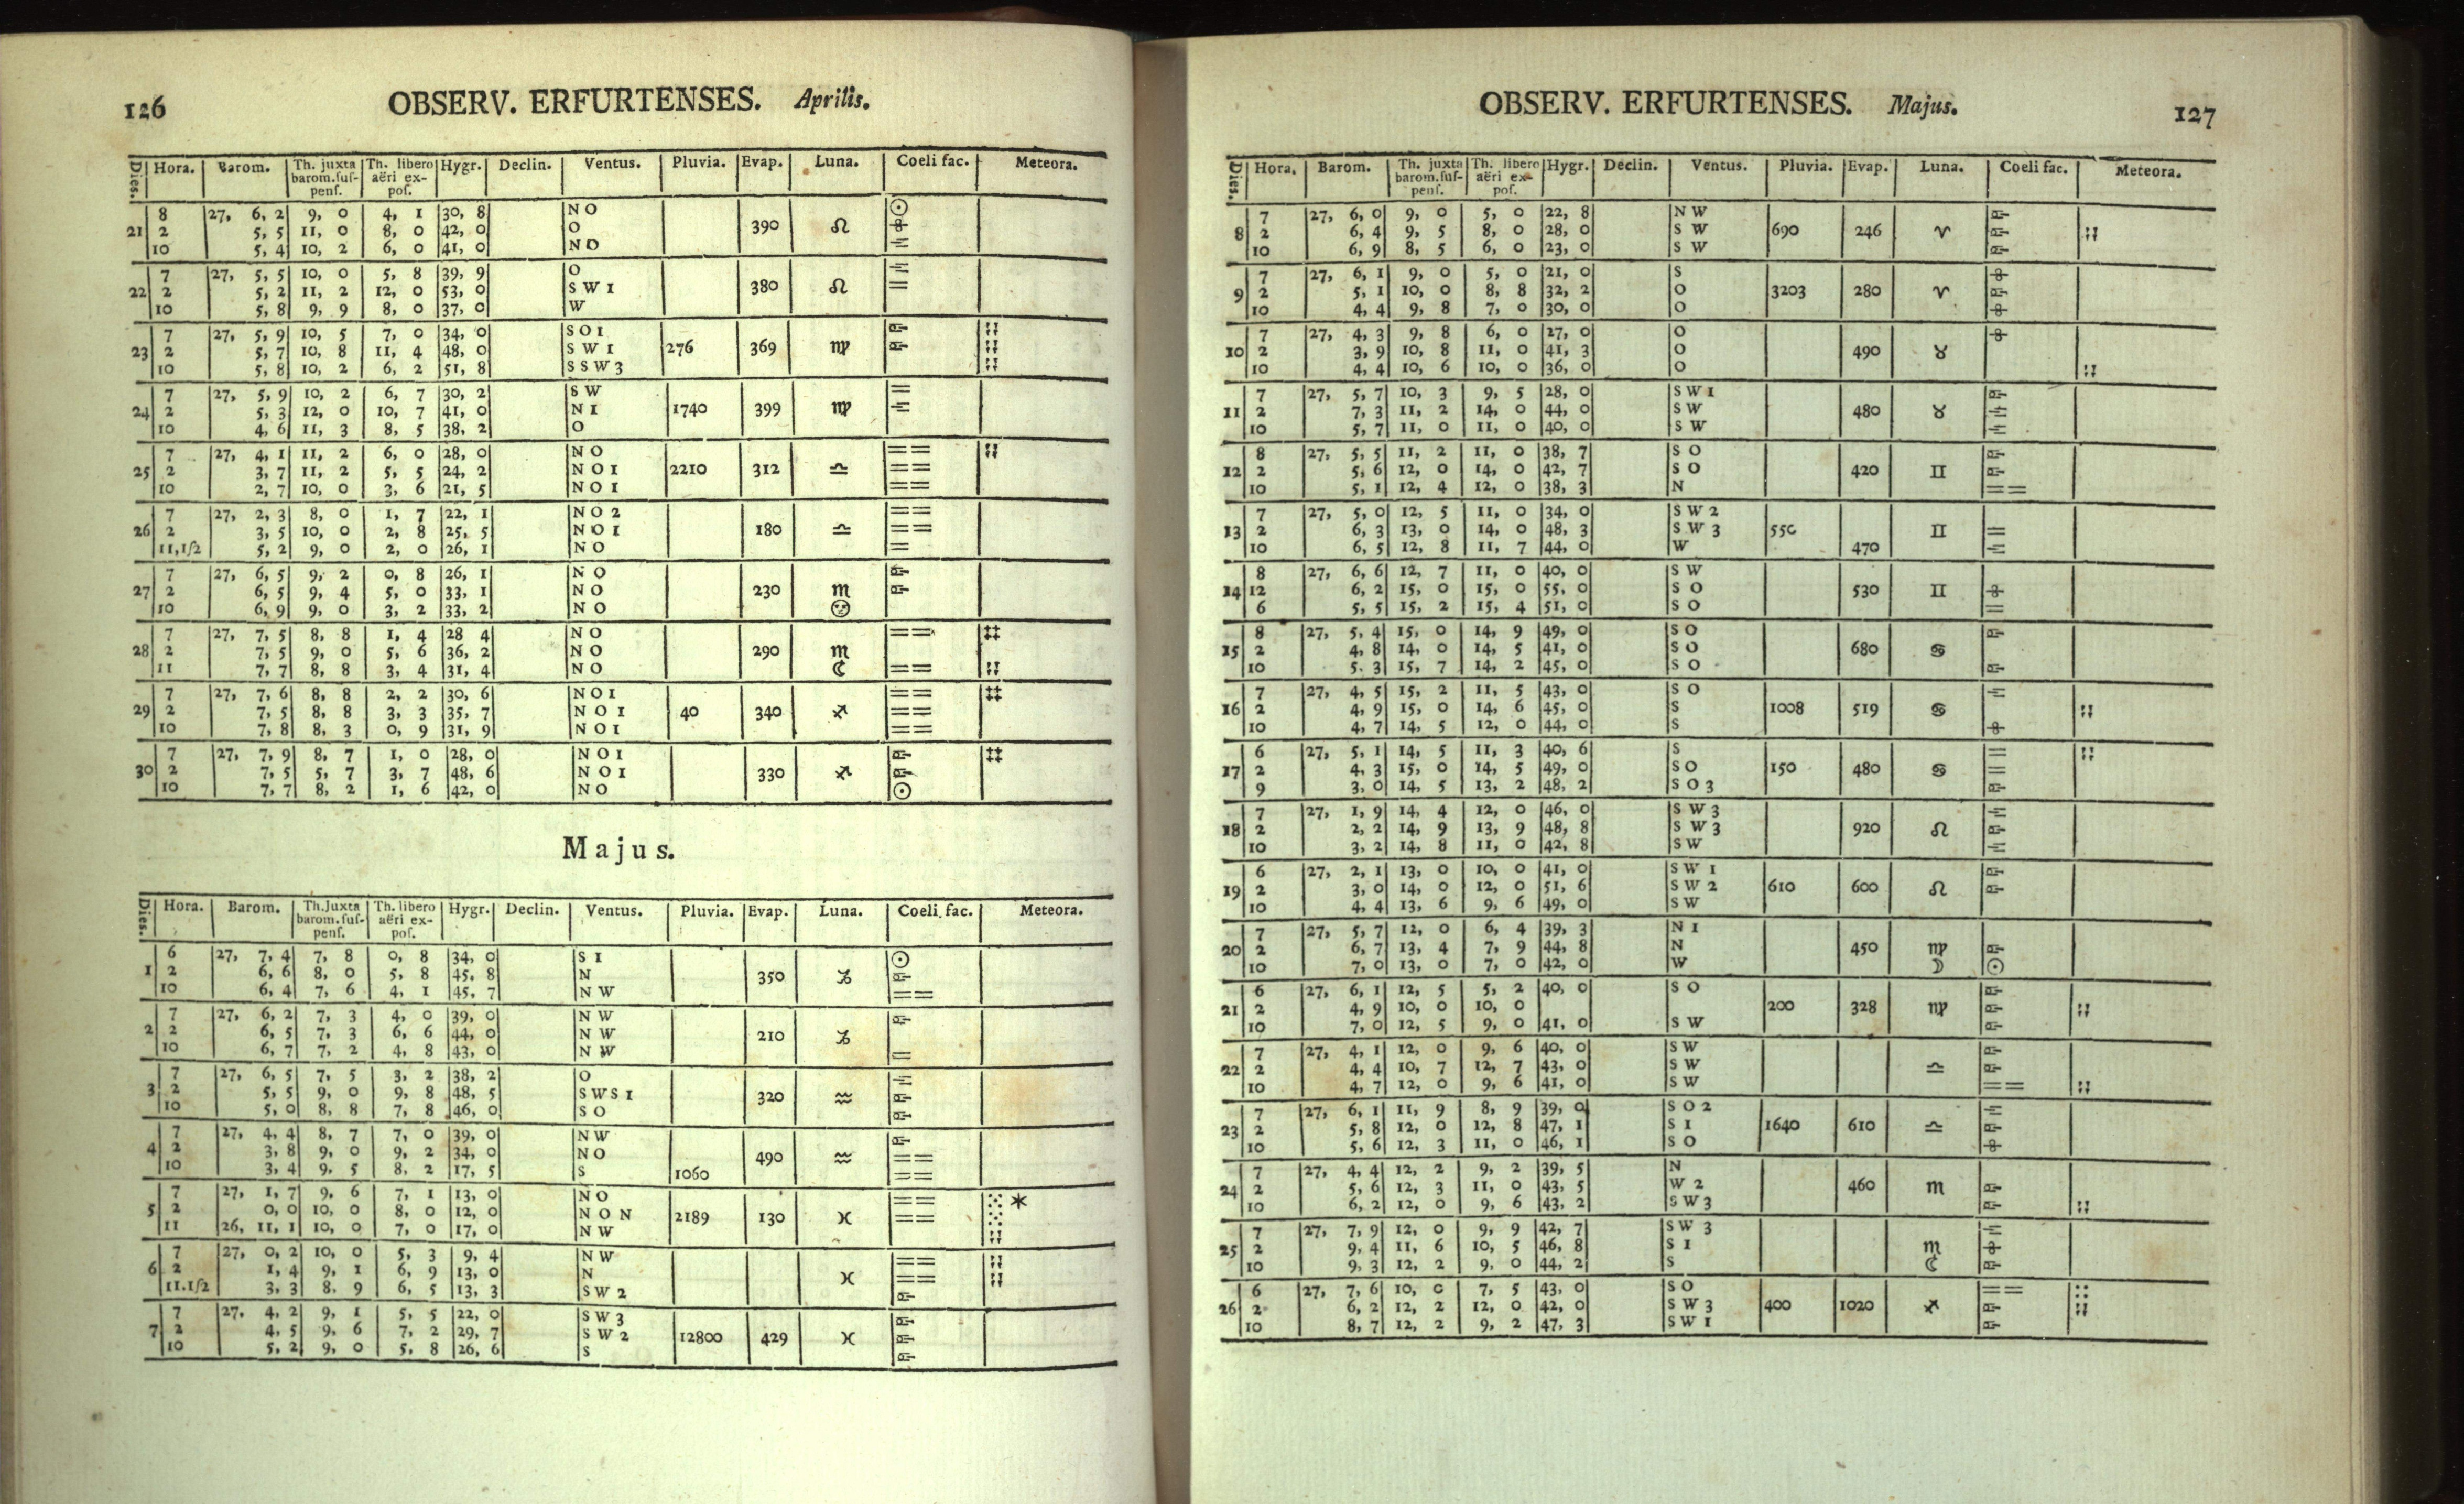 126 OBSERV. ERFURTENSES. Aprilis.
Dies. Hora. Barom. Th. juxta barom. suspens. Th. libero aëri expos. Hygr. Declin. Ventus. Pluvia. Evap. Luna. Coeli fac. Meteora.
8 27, 6, 2 9, 0 4, 1 30, 8 N O ☉
21 2 5, 5 11, 0 8, 0 42, 0 O 390 ♌
10 5, 4 10, 2 6, 0 41, 0 N O
7 27, 5, 5 10, 0 5, 8 39, 9 O
22 2 5, 2 11, 2 12, 0 53, 0 S W 1 380 ♌ =
10 5, 8 9, 9 8, 0 37, 0 W
7 27, 5, 9 10, 5 7, 0 34, 0 S O 1
23 2 5, 7 10, 8 11, 4 48, 0 S W 1 276 369 ♍
10 5, 8 10, 2 6, 2 51, 8 S S W 3
7 27, 5, 9 10, 2 6, 7 30, 2 S W =
24 2 5, 3 12, 0 10, 7 41, 0 N 1 1740 399 ♍
10 4, 6 11, 3 8, 5 38, 2 O
7 27, 4, 1 11, 2 6, 0 28, 0 N O = =
25 2 3, 7 11, 2 5, 5 24, 2 N O 1 2210 312 ♎ = =
10 2, 7 10, 0 3, 6 21, 5 N O 1 = =
7 27, 2, 3 8, 0 1, 7 22, 1 N O 2 = =
26 2 3, 5 10, 0 2, 8 25, 5 N O 1 180 ♎ = =
11,1/2 5, 2 9, 0 2, 0 26, 1 N O =
7 27, 6, 5 9, 2 0, 8 26, 1 N O
27 2 6, 5 9, 4 5, 0 33, 1 N O 230 ♏
10 6, 9 9, 0 3, 2 33, 2 N O
7 27, 7, 5 8, 8 1, 4 28 4 N O = =
28 2 7, 5 9, 0 5, 6 36, 2 N O 290 ♏
11 7, 7 8, 8 3, 4 31, 4 N O ☾ = =
7 27, 7, 6 8, 8 2, 2 30, 6 N O 1 = =
29 2 7, 5 8, 8 3, 3 35, 7 N O 1 40 340 ♐ = =
10 7, 8 8, 3 0, 9 31, 9 N O 1 = =
7 27, 7, 9 8, 7 1, 0 28, 0 N O 1
30 2 7, 5 5, 7 3, 7 48, 6 N O 1 330 ♐
10 7, 7 8, 2 1, 6 42, 0 N O ☉
Majus.
Dies. Hora. Barom. Th. Juxta barom. suspens. Th. libero aëri expos. Hygr. Declin. Ventus. Pluvia. Evap. Luna. Coeli fac. Meteora.
6 27, 7, 4 7, 8 0, 8 34, 0 S 1 ☉
1 2 6, 6 8, 0 5, 8 45, 8 N 350 ♑
10 6, 4 7, 6 4, 1 45, 7 N W = =
7 27, 6, 2 7, 3 4, 0 39, 0 N W
2 2 6, 5 7, 3 6, 6 44, 0 N W 210 ♑
10 6, 7 7, 2 4, 8 43, 0 N W =
7 27, 6, 5 7, 5 3, 2 38, 2 O
3 2 5, 5 9, 0 9, 8 48, 5 S W S 1 320 ♒
10 5, 0 8, 8 7, 8 46, 0 S O
7 27, 4, 4 8, 7 7, 0 39, 0 N W
4 2 3, 8 9, 0 9, 2 34, 0 N O 490 ♒ = =
10 3, 4 9, 5 8, 2 17, 5 S 1060 = =
7 27, 1, 7 9, 6 7, 1 13, 0 N O = = *
5 2 0, 0 10, 0 8, 0 12, 0 N O N 2189 130 ♓ = =
11 26, 11, 1 10, 0 7, 0 17, 0 N W
7 27, 0, 2 10, 0 5, 3 9, 4 N W = =
6 2 1, 4 9, 1 6, 9 13, 0 N ♓ = =
11.1/2 3, 3 8, 9 6, 5 13, 3 S W 2
7 27, 4, 2 9, 1 5, 5 22, 0 S W 3
7 2 4, 5 9, 6 7, 2 29, 7 S W 2 12800 429 ♓
10 5, 2 9, 0 5, 8 26, 6 S
OBSERV. ERFURTENSES. Majus. 127
Dies. Hora. Barom. Th. juxta barom. suspens. Th. libero aëri expos. Hygr. Declin. Ventus. Pluvia. Evap. Luna. Coeli fac. Meteora.
7 27, 6, 0 9, 0 5, 0 22, 8 N W
8 2 6, 4 9, 5 8, 0 28, 0 S W 690 246 ♈
10 6, 9 8, 5 6, 0 23, 0 S W
7 27, 6, 1 9, 0 5, 0 21, 0 S
9 2 5, 1 10, 0 8, 8 32, 2 O 3203 280 ♈
10 4, 4 9, 8 7, 0 30, 0 O
7 27, 4, 3 9, 8 6, 0 27, 0 O
10 2 3, 9 10, 8 11, 0 41, 3 O 490 ♉
10 4, 4 10, 6 10, 0 36, 0 O
7 27, 5, 7 10, 3 9, 5 28, 0 S W 1
11 2 7, 3 11, 2 14, 0 44, 0 S W 480 ♉
10 5, 7 11, 0 11, 0 40, 0 S W
8 27, 5, 5 11, 2 11, 0 38, 7 S O
12 2 5, 6 12, 0 14, 0 42, 7 S O 420 ♊
10 5, 1 12, 4 12, 0 38, 3 N = =
7 27, 5, 0 12, 5 11, 0 34, 0 S W 2
13 2 6, 3 13, 0 14, 0 48, 3 S W 3 550 ♊ =
10 6, 5 12, 8 11, 7 44, 0 W 470
8 27, 6, 6 12, 7 11, 0 40, 0 S W
14 12 6, 2 15, 0 15, 0 55, 0 S O 530 ♊
6 5, 5 15, 2 15, 4 51, 0 S O =
8 27, 5, 4 15, 0 14, 9 49, 0 S O
15 2 4, 8 14, 0 14, 5 41, 0 S O 680 ♋
10 5. 3 15, 7 14, 2 45, 0 S O
7 27, 4, 5 15, 2 11, 5 43, 0 S O
16 2 4, 9 15, 0 14, 6 45, 0 S 1008 519 ♋
10 4, 7 14, 5 12, 0 44, 0 S
6 27, 5, 1 14, 5 11, 3 40, 6 S =
17 2 4, 3 15, 0 14, 5 49, 0 S O 150 480 ♋ =
9 3, 0 14, 5 13, 2 48, 2 S O 3
7 27, 1, 9 14, 4 12, 0 46, 0 S W 3
18 2 2, 2 14, 9 13, 9 48, 8 S W 3 920 ♌
10 3, 2 14, 8 11, 0 42, 8 S W
6 27, 2, 1 13, 0 10, 0 41, 0 S W 1
19 2 3, 0 14, 0 12, 0 51, 6 S W 2 610 600 ♌
10 4, 4 13, 6 9, 6 49, 0 S W
7 27, 5, 7 12, 0 6, 4 39, 3 N 1
20 2 6, 7 13, 4 7, 9 44, 8 N 450 ♍
10 7, 0 13, 0 7, 0 42, 0 W ☽ ☉
6 27, 6, 1 12, 5 5, 2 40, 0 S O
21 2 4, 9 10, 0 10, 0 200 328 ♍
10 7, 0 12, 5 9, 0 41, 0 S W
7 27, 4, 1 12, 0 9, 6 40, 0 S W
22 2 4, 4 10, 7 12, 7 43, 0 S W ♎
10 4, 7 12, 0 9, 6 41, 0 S W = =
7 27, 6, 1 11, 9 8, 9 39, 0 S O 2
23 2 5, 8 12, 0 12, 8 47, 1 S 1 1640 610 ♎
10 5, 6 12, 3 11, 0 46, 1 S O
7 27, 4, 4 12, 2 9, 2 39, 5 N
24 2 5, 6 12, 3 11, 0 43, 5 W 2 460 ♏
10 6, 2 12, 0 9, 6 43, 2 S W 3
7 27, 7, 9 12, 0 9, 9 42, 7 S W 3
25 2 9, 4 11, 6 10, 5 46, 8 S 1 ♏
10 9, 3 12, 2 9, 0 44, 2 S ☾
6 27, 7, 6 10, 0 7, 5 43, 0 S O = =
26 2 6, 2 12, 2 12, 0 42, 0 S W 3 400 1020 ♐
10 8, 7 12, 2 9, 2 47, 3 S W 1